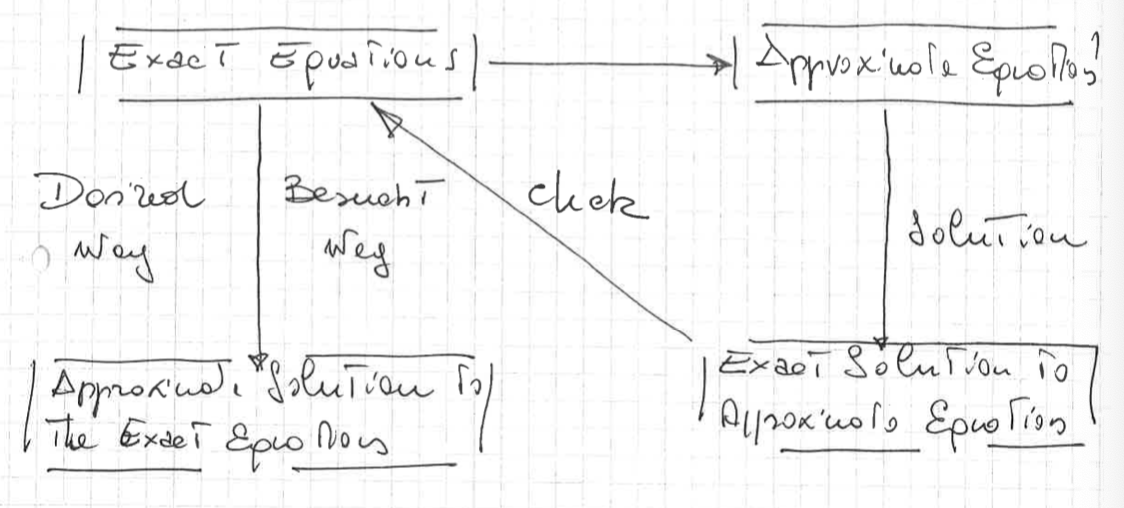 Exact Equations
Approximate Equations
Desired
Way
Besucht
Weg
Check
Solution
Approximate Solution to
the Exact Equations
Exact Solution to
Approximate Equations